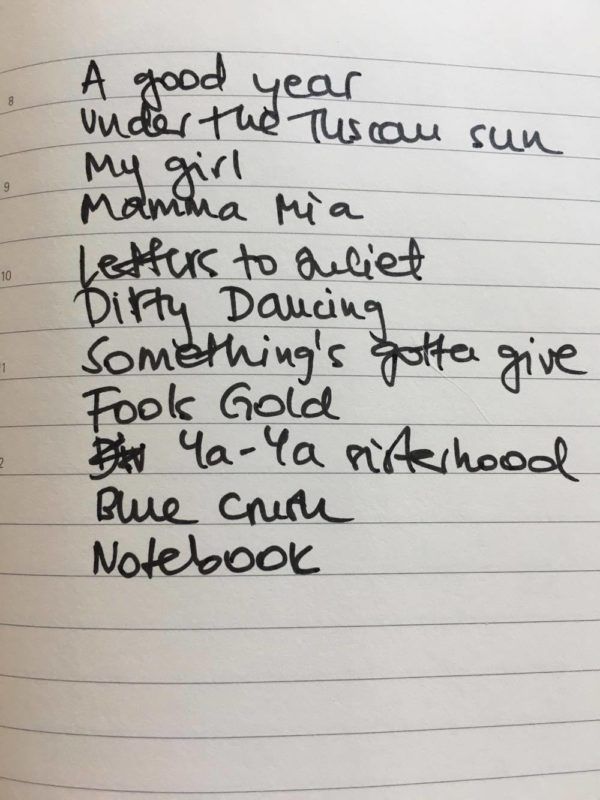 A good year
Under the Tuscan sun
My girl
Mamma Mia
Letters to Juliet
Dirty Dancing
Something's gotta give
Fools Gold
Ya-Ya sisterhood
Blue Crush
Notebook
8
9
10
1
2